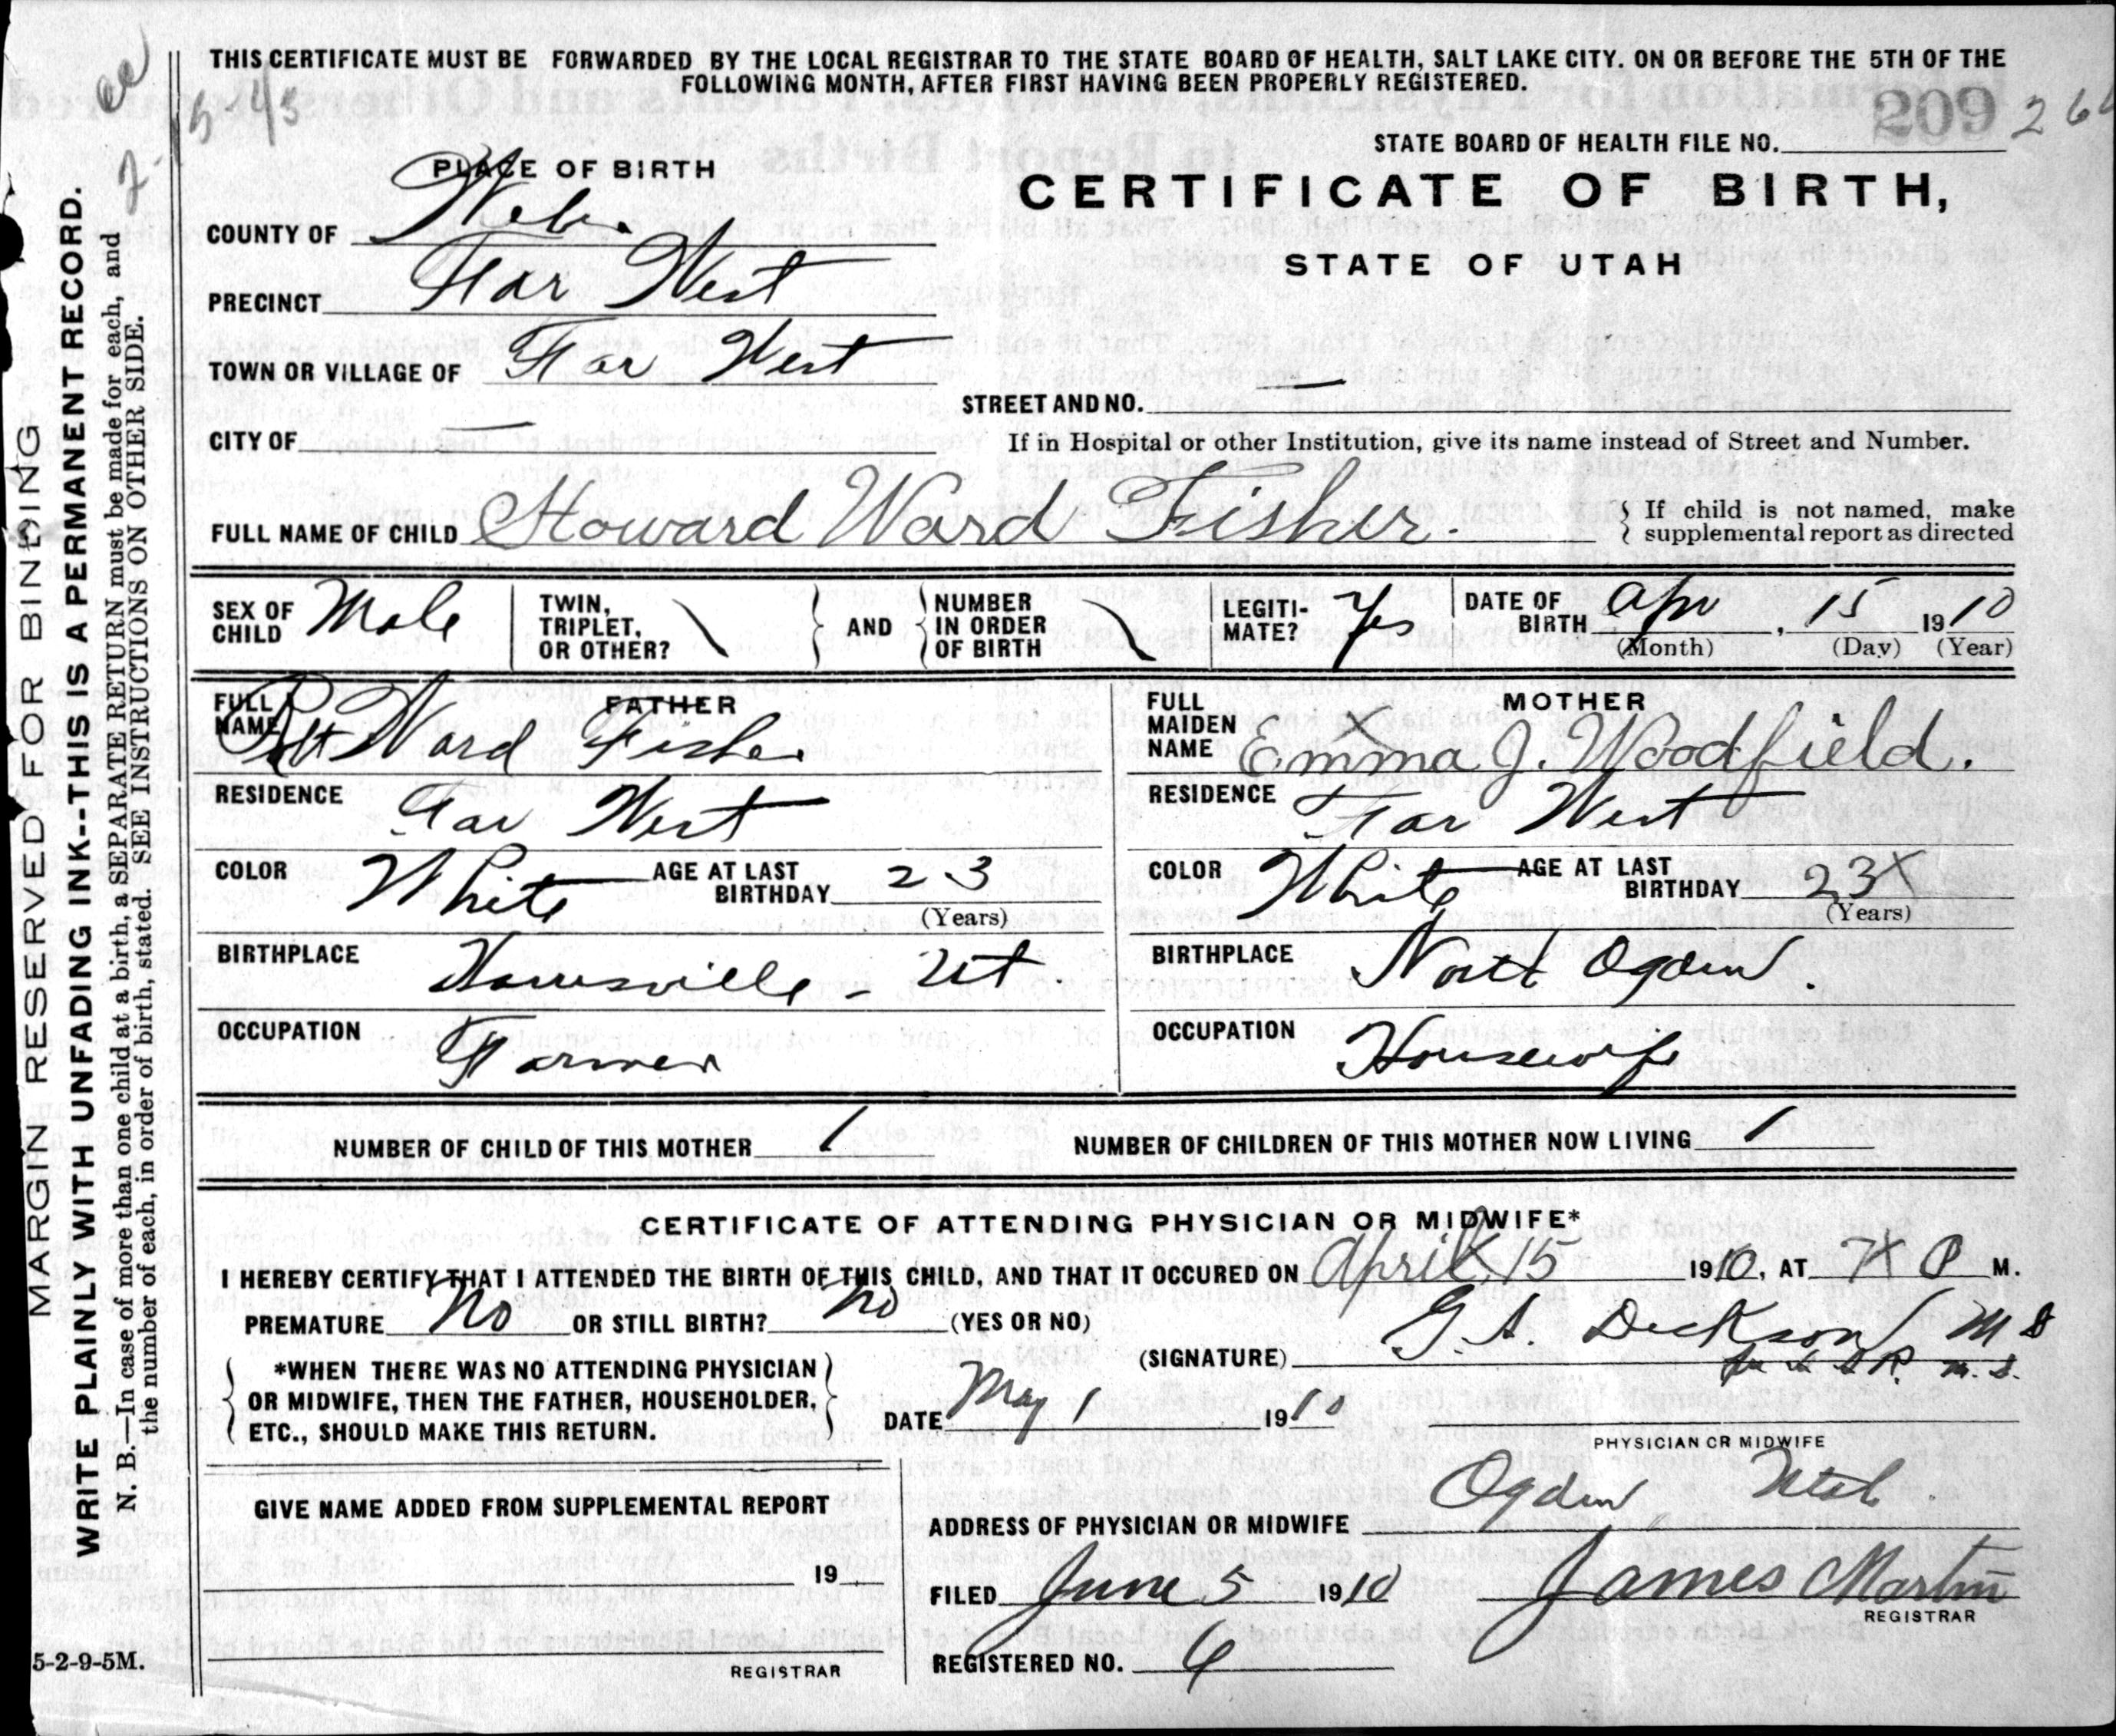 THIS CERTIFICATE MUST BE FORWARDED BY THE LOCAL REGISTRAR TO THE STATE BOARD OF HEALTH, SALT LAKE CITY. ON OR BEFORE THE 5TH OF THE
FOLLOWING MONTH, AFTER FIRST HAVING BEEN PROPERLY REGISTERED.
209
STATE BOARD OF HEALTH FILE NO.
PLACE OF BIRTH
CERTIFICATE OF BIRTH,
STATE OF UTAH
COUNTY OF Web.
PRECINCT Far West
TOWN OR VILLAGE OF Far West
STREET AND NO. —
CITY OF —
If in Hospital or other Institution, give its name instead of Street and Number.
FULL NAME OF CHILD Howard Ward Fisher.
If child is not named, make
supplemental report as directed
SEX OF CHILD Male
TWIN, TRIPLET, OR OTHER?
AND
NUMBER IN ORDER OF BIRTH
LEGITI-MATE? Yes
DATE OF BIRTH Apr, 15 1910
(Month) (Day) (Year)
FATHER
FULL NAME Ward Fisher
MOTHER
FULL MAIDEN NAME Emma J. Woodfield.
RESIDENCE Far West
RESIDENCE Far West
COLOR White AGE AT LAST BIRTHDAY 23
(Years)
COLOR White AGE AT LAST BIRTHDAY 23X
(Years)
BIRTHPLACE Harrisville - Ut.
BIRTHPLACE North Ogden.
OCCUPATION Farmer
OCCUPATION Housewife
NUMBER OF CHILD OF THIS MOTHER 1
NUMBER OF CHILDREN OF THIS MOTHER NOW LIVING 1
CERTIFICATE OF ATTENDING PHYSICIAN OR MIDWIFE*
I HEREBY CERTIFY THAT I ATTENDED THE BIRTH OF THIS CHILD, AND THAT IT OCCURED ON April 15 1910, AT 7 P M.
PREMATURE No OR STILL BIRTH? No (YES OR NO)
(SIGNATURE) G. A. Dickson M D
*WHEN THERE WAS NO ATTENDING PHYSICIAN
OR MIDWIFE, THEN THE FATHER, HOUSEHOLDER,
ETC., SHOULD MAKE THIS RETURN.
DATE May 1 1910
PHYSICIAN OR MIDWIFE
GIVE NAME ADDED FROM SUPPLEMENTAL REPORT
19
REGISTRAR
ADDRESS OF PHYSICIAN OR MIDWIFE Ogden Utah.
FILED June 5 1910
James Martin
REGISTRAR
REGISTERED NO. 6
MARGIN RESERVED FOR BINDING
WRITE PLAINLY WITH UNFADING INK--THIS IS A PERMANENT RECORD.
N. B.—In case of more than one child at a birth, a SEPARATE RETURN must be made for each, and
the number of each, in order of birth, stated. SEE INSTRUCTIONS ON OTHER SIDE.
5-2-9-5M.